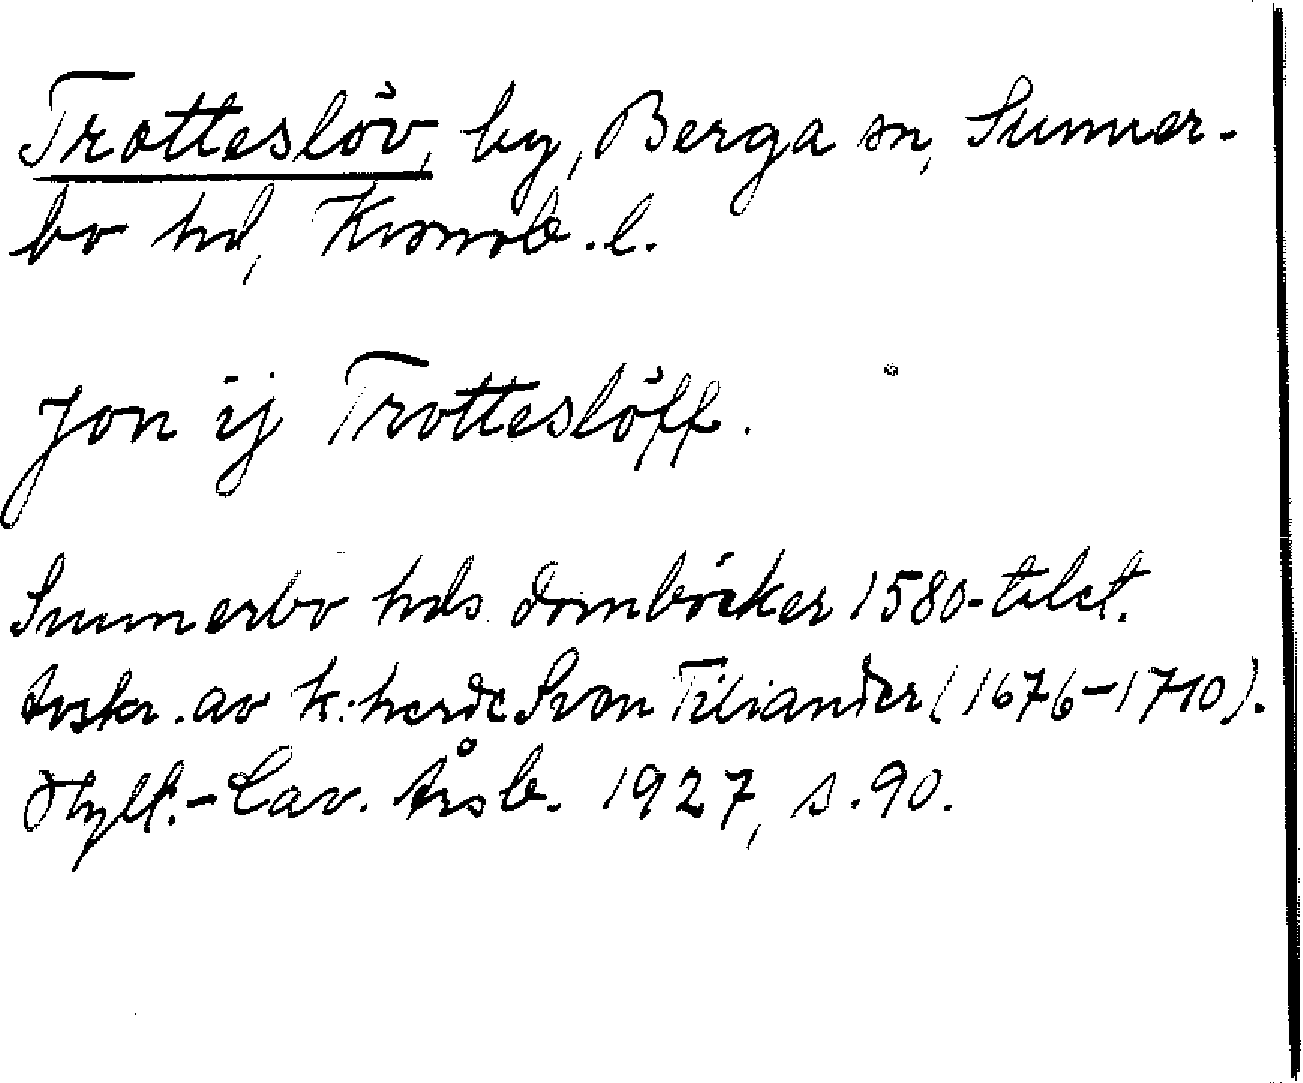 Trotteslöv, by, Berga sn, Sunner-
bo hd, Kronob. l.
Jon ij Trotteslöff.
Sunnerbo hds domböcker 1580-talet.
Avskr. av k. herde Sven Tiliander (1676-1710).
Hylt.-Cav. Årsb. 1927, s. 90.